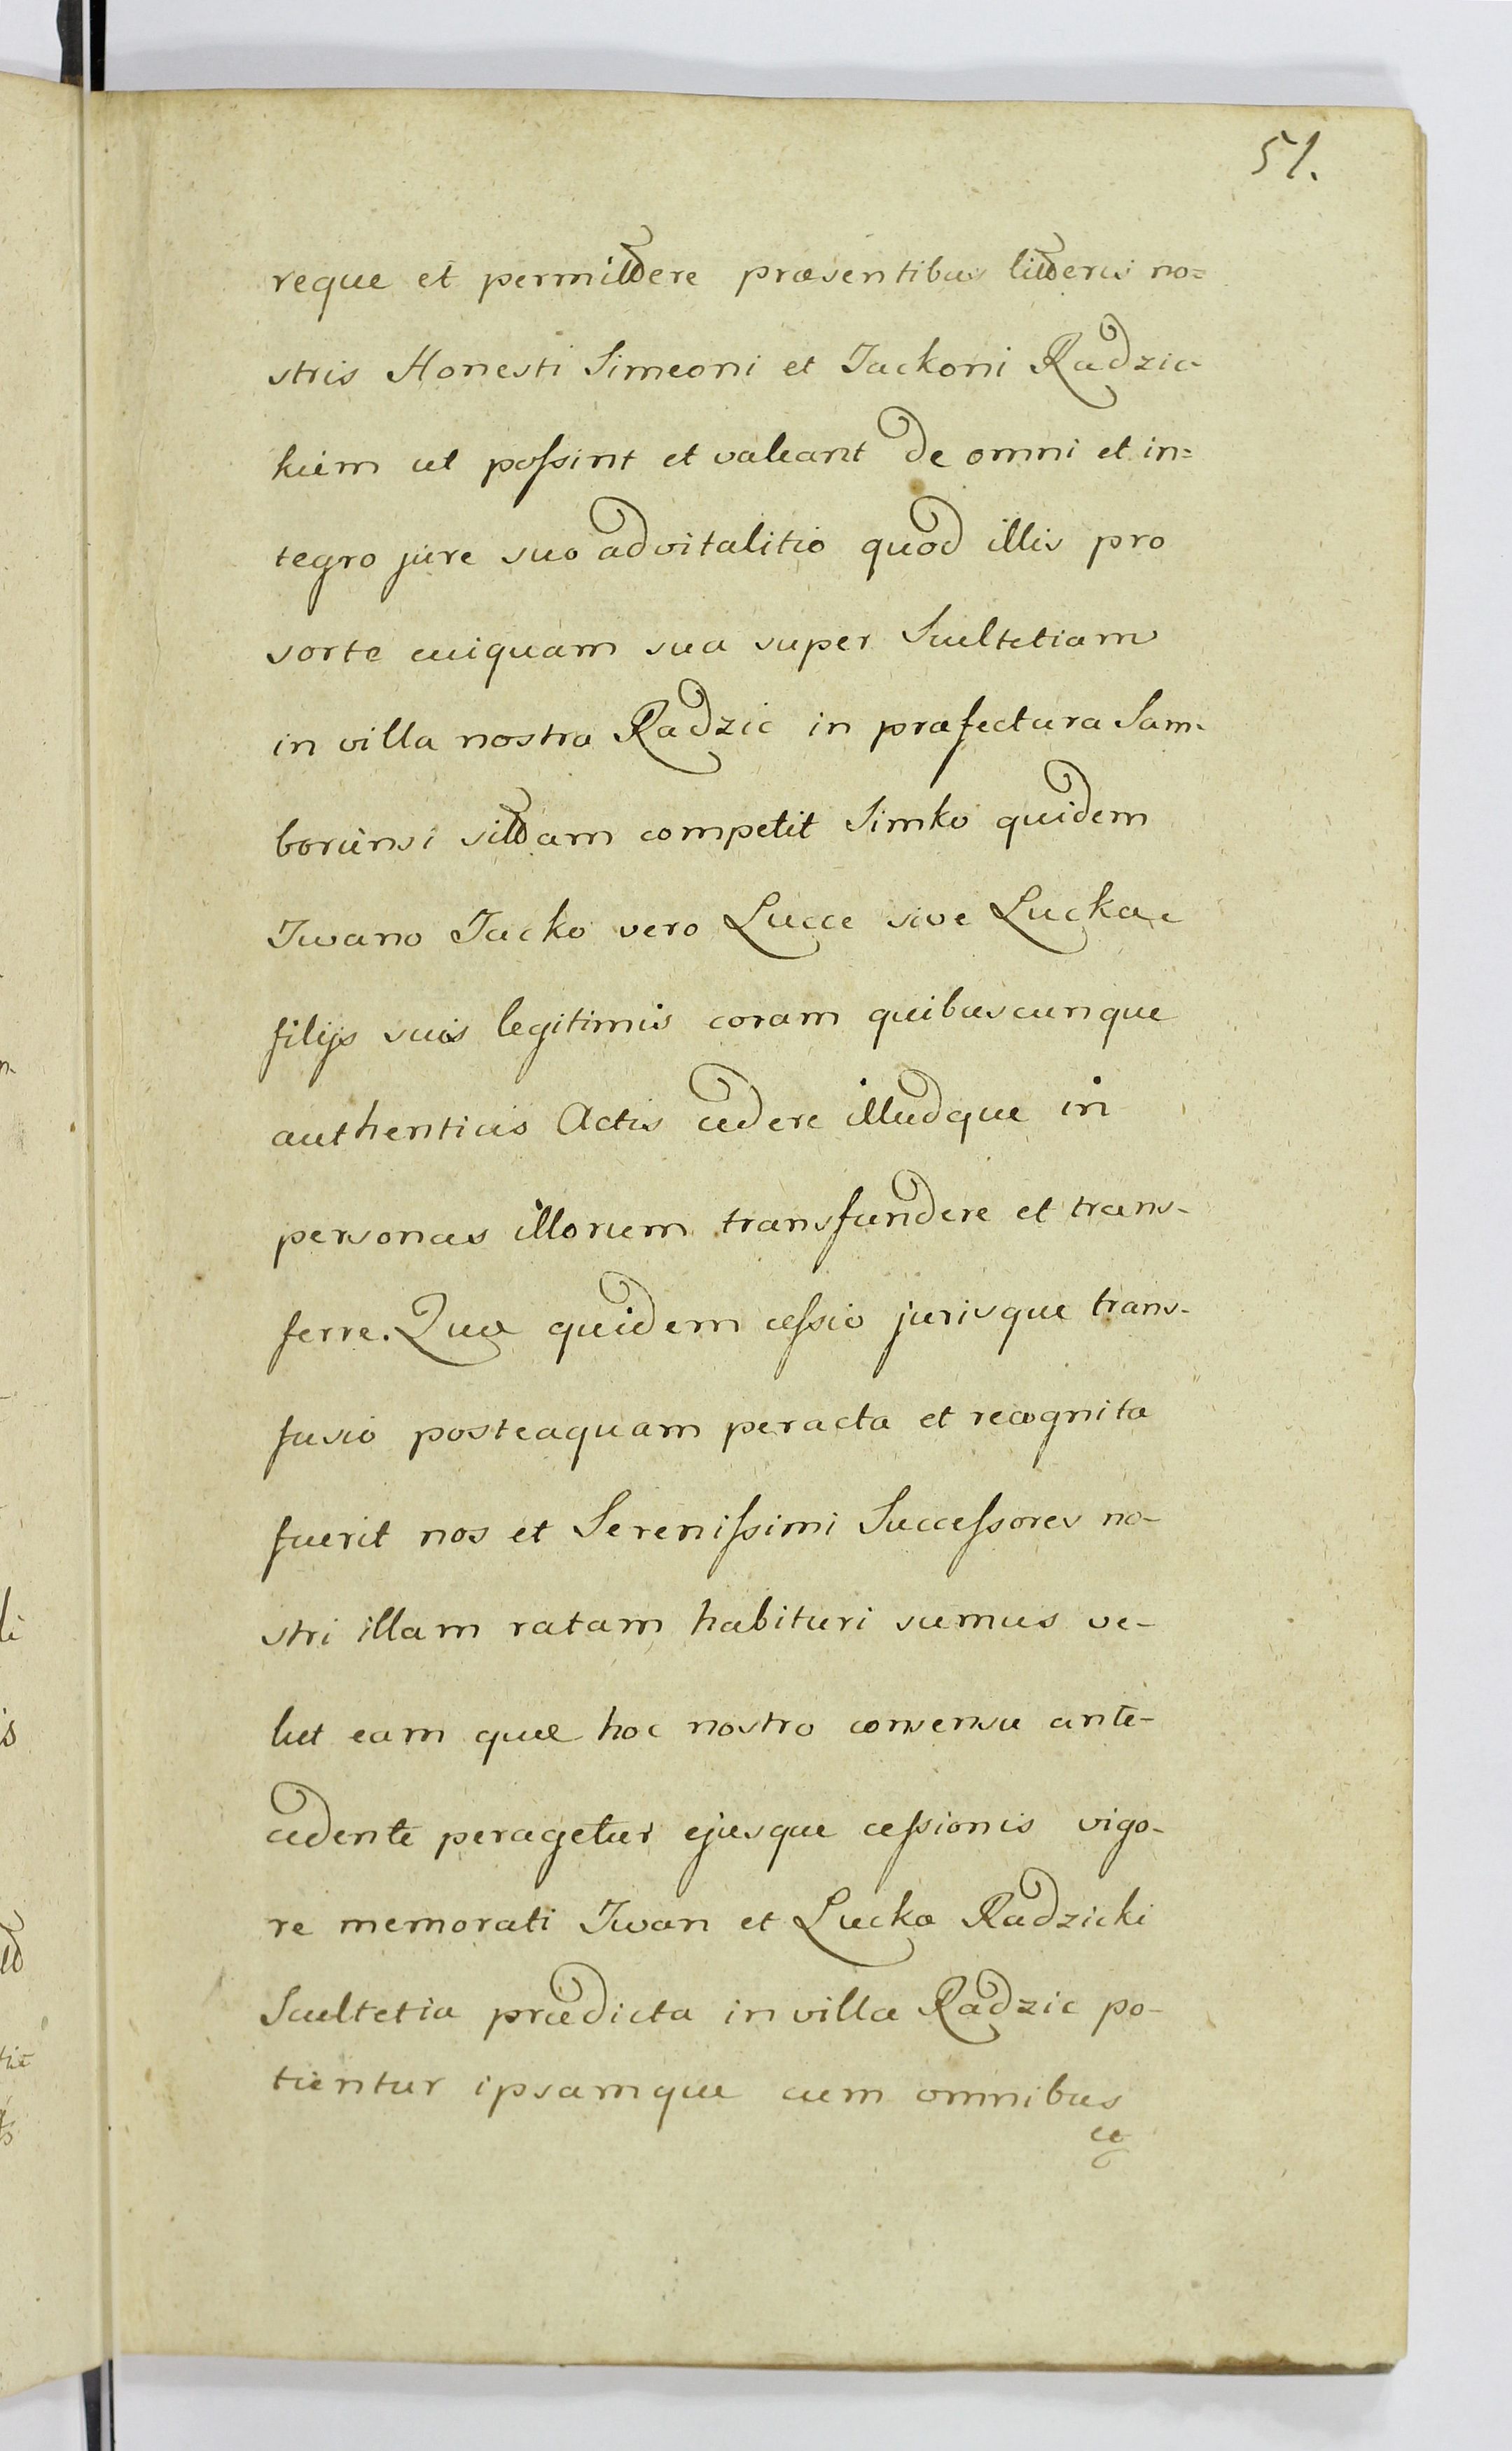 51.
reque et permittere præsentibus litteris no=
stris Honesti Simeoni et Jackoni Radzic-
kiem ut poſsint et valeant de omni et in=
tegro jure suo advitalitio quod illis pro
sorte cuiquam sua super Scultetiam
in villa nostra Radzic in præfectura Sam-
boriensi sittam competit Simko quidem
Iwano Jacko vero Lucce sive Luckae
filijs suis legitimis coram quibuscunque
authenticis Actis cedere illudque in
personas illorum transfundere et trans-
ferre. Quæ quidem ceſsio jurisque trans-
fusio posteaquam peracta et recognita
fuerit nos et Sereniſsimi Succeſsores no-
stri illam ratam habituri sumus ve-
lut eam quæ hoc nostro consensu ante-
cedente peragetur ejusque ceſsionis vigo-
re memorati Iwan et Lucka Radzicki
Scultetia prædicta in villa Radzic po-
tientur ipsamque cum omnibus